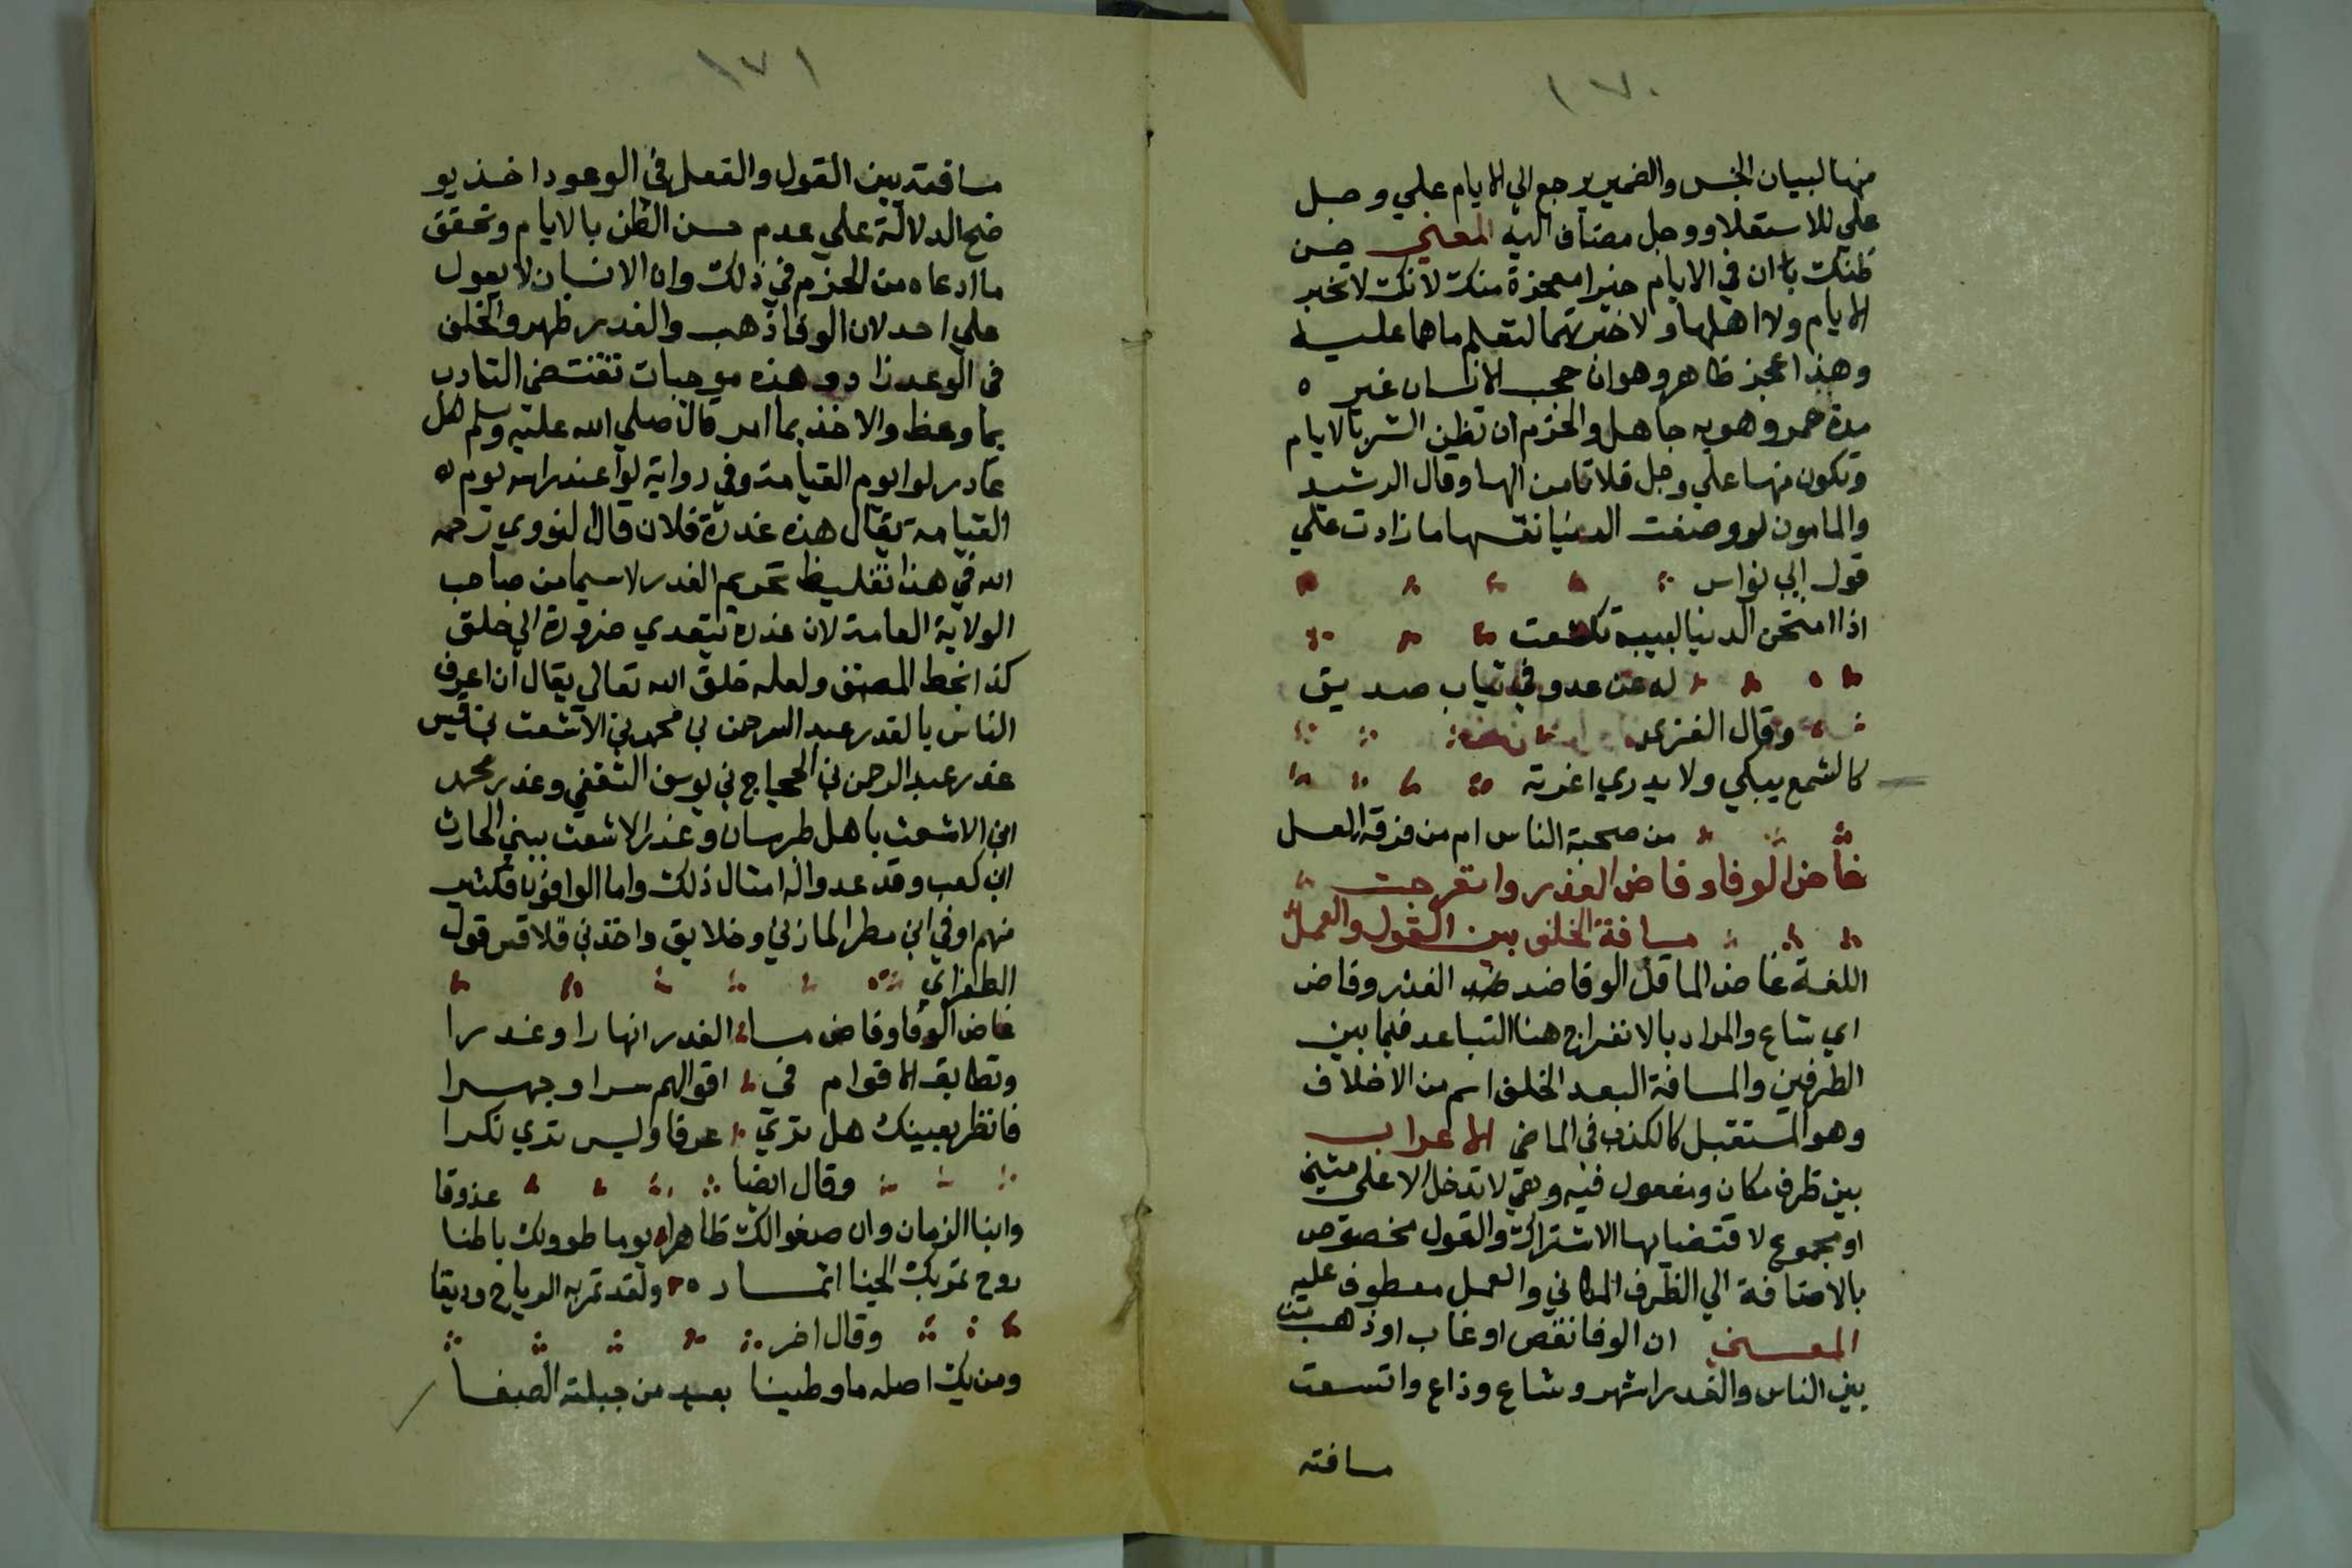 ١٧٠
منها لبيان الجنس والضمير يرجع الي الايام علي وجل
علي للاستعلاء ووجل مضاف اليه المعني حسن
ظنك بان في الايام خيرا معجزة منك لانك لا تخبر
الايام ولا اهلها ولا اختبرتهما لتعلم ما هما عليه
وهذا عجز ظاهر وهو ان حجب الانسان غير ٥
مدة عمره وهو به جاهل والحزم ان تظن الشر بالايام
وتكون منها علي وجل فلا تامن الها وقال الرشيد
والمامون لو وصفت الدنيا نفسها ما زادت علي
قول ابي نواس
اذا امتحن الدنيا لبيب تكشفت
له عن عدو في ثياب صديق
وقال الغزي
كالشمع يبكي ولا يدري اغرته
من صحبة الناس ام من فرقة العسل
غاض الوفا وفاض الغدر وانفرجت
مسافة الخلف بين القول والعمل
اللغة غاض الما قل الوفا ضد الغدر وفاض
اي شاع والمراد بالانفراج هنا التباعد فيما بين
الطرفين والمسافة البعد الخلف اسم من الاخلاف
وهو المستقبل كالكذب في الماضي الاعراب
بين ظرف مكان ومفعول فيه وهي لا تدخل الا علي مثني
او مجموع لاقتضايها الاشتراك والقول مخصوص
بالاضافة الي الظرف المكاني والعمل معطوف عليه
المعني ان الوفا نقص او غاب او ذهب من
بين الناس والغدر اشهر وشاع وذاع واتسعت
مسافته
١٧١
مسافته بين القول والفعل في الوعود اخذ يو
ضح الدلالة علي عدم حسن الظن بالايام وتحقق
ما ادعاه من الحزم في ذلك وان الانسان لا يعول
علي احد لان الوفا ذهب والغدر ظهر والخلف
في الوعد زاد وهذه موجبات تقتضي التادب
بما وعظ والاخذ بما امر قال صلي الله عليه وسلم لكل
غادر لوا يوم القيامة وفي رواية لوا عند راسه يوم ٥
القيامة يقال هذه غدرة فلان قال النووي رحمه
الله في هذا تغليظ تحريم الغدر لا سيما من صاحب
الولاية العامة لان غدره يتعدي ضروره الي خلق
كذا بخط المصنف ولعله خلق الله تعالي يقال ان اعرف
الناس بالغدر عبد الرحمن بن محمد بن الاشعث بن قيس
غدر عبد الرحمن بن الحجاج بن يوسف الثقفي وغدر محمد
ابن الاشعث باهل طبرسان وغدر الاشعث ببني الحارث
ابن كعب وقد عدوا له امثال ذلك واما الوافون فكثير
منهم اوفي ابن مطر المازني وخلايق واخذني قلاقس قول
الطغراي
غاض الوفا وفاض ما الغدر انهارا وغدرا
وتطابق الاقوام في اقوالهم سرا وجهرا
فانظر بعينك هل تري عرفا وليس تري نكرا
وقال ايضا
وابنا الزمان وان صفوا لك ظاهرا يوما طووا لك باطنا
ولقد تمر به الرياح وريقا
وقال اخر
ومن يك اصله ما وطينا بعيد من جبلته الصفا